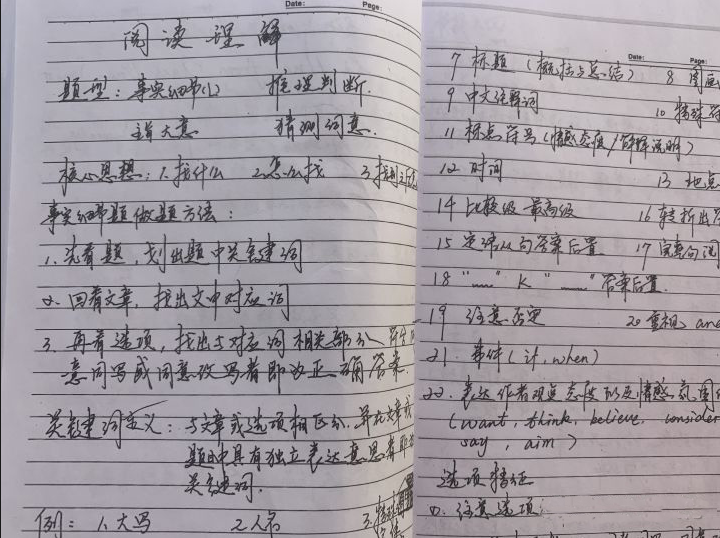 Date:
Page:
阅读理解
题型：事实细节(1) 推理判断.
主旨大意 猜测词意.
核心思想：1.找什么 2.怎么找 3.找到
事实细节题做题方法：
1.先看题，划出题中关键词
2.回看文章，找出文中对应词
3.再看选项，找出与对应词相关部分
意同写或同意改写者即为正确答案.
关键词定义：与文章或选项相区分.
题中具有独立表达意思者即
关键词.
例：1.大写 2.人名 3.
Date:
Page:
7 标题（概括与总结） 8
9 中文注释词 10 特殊符
11 标点符号（情感态度/解释说明）
12 时间 13 地点
14 比较级 最高级 16 转折出
15 定语从句答案后置 17
18 "——" K "——" 答案后置.
19 注意否定 20 重视 and
21.条件（if, when）
22.表达作者观点态度以及情感
(want, think, believe, consider
say, aim)
选项特征
①.注意选项: